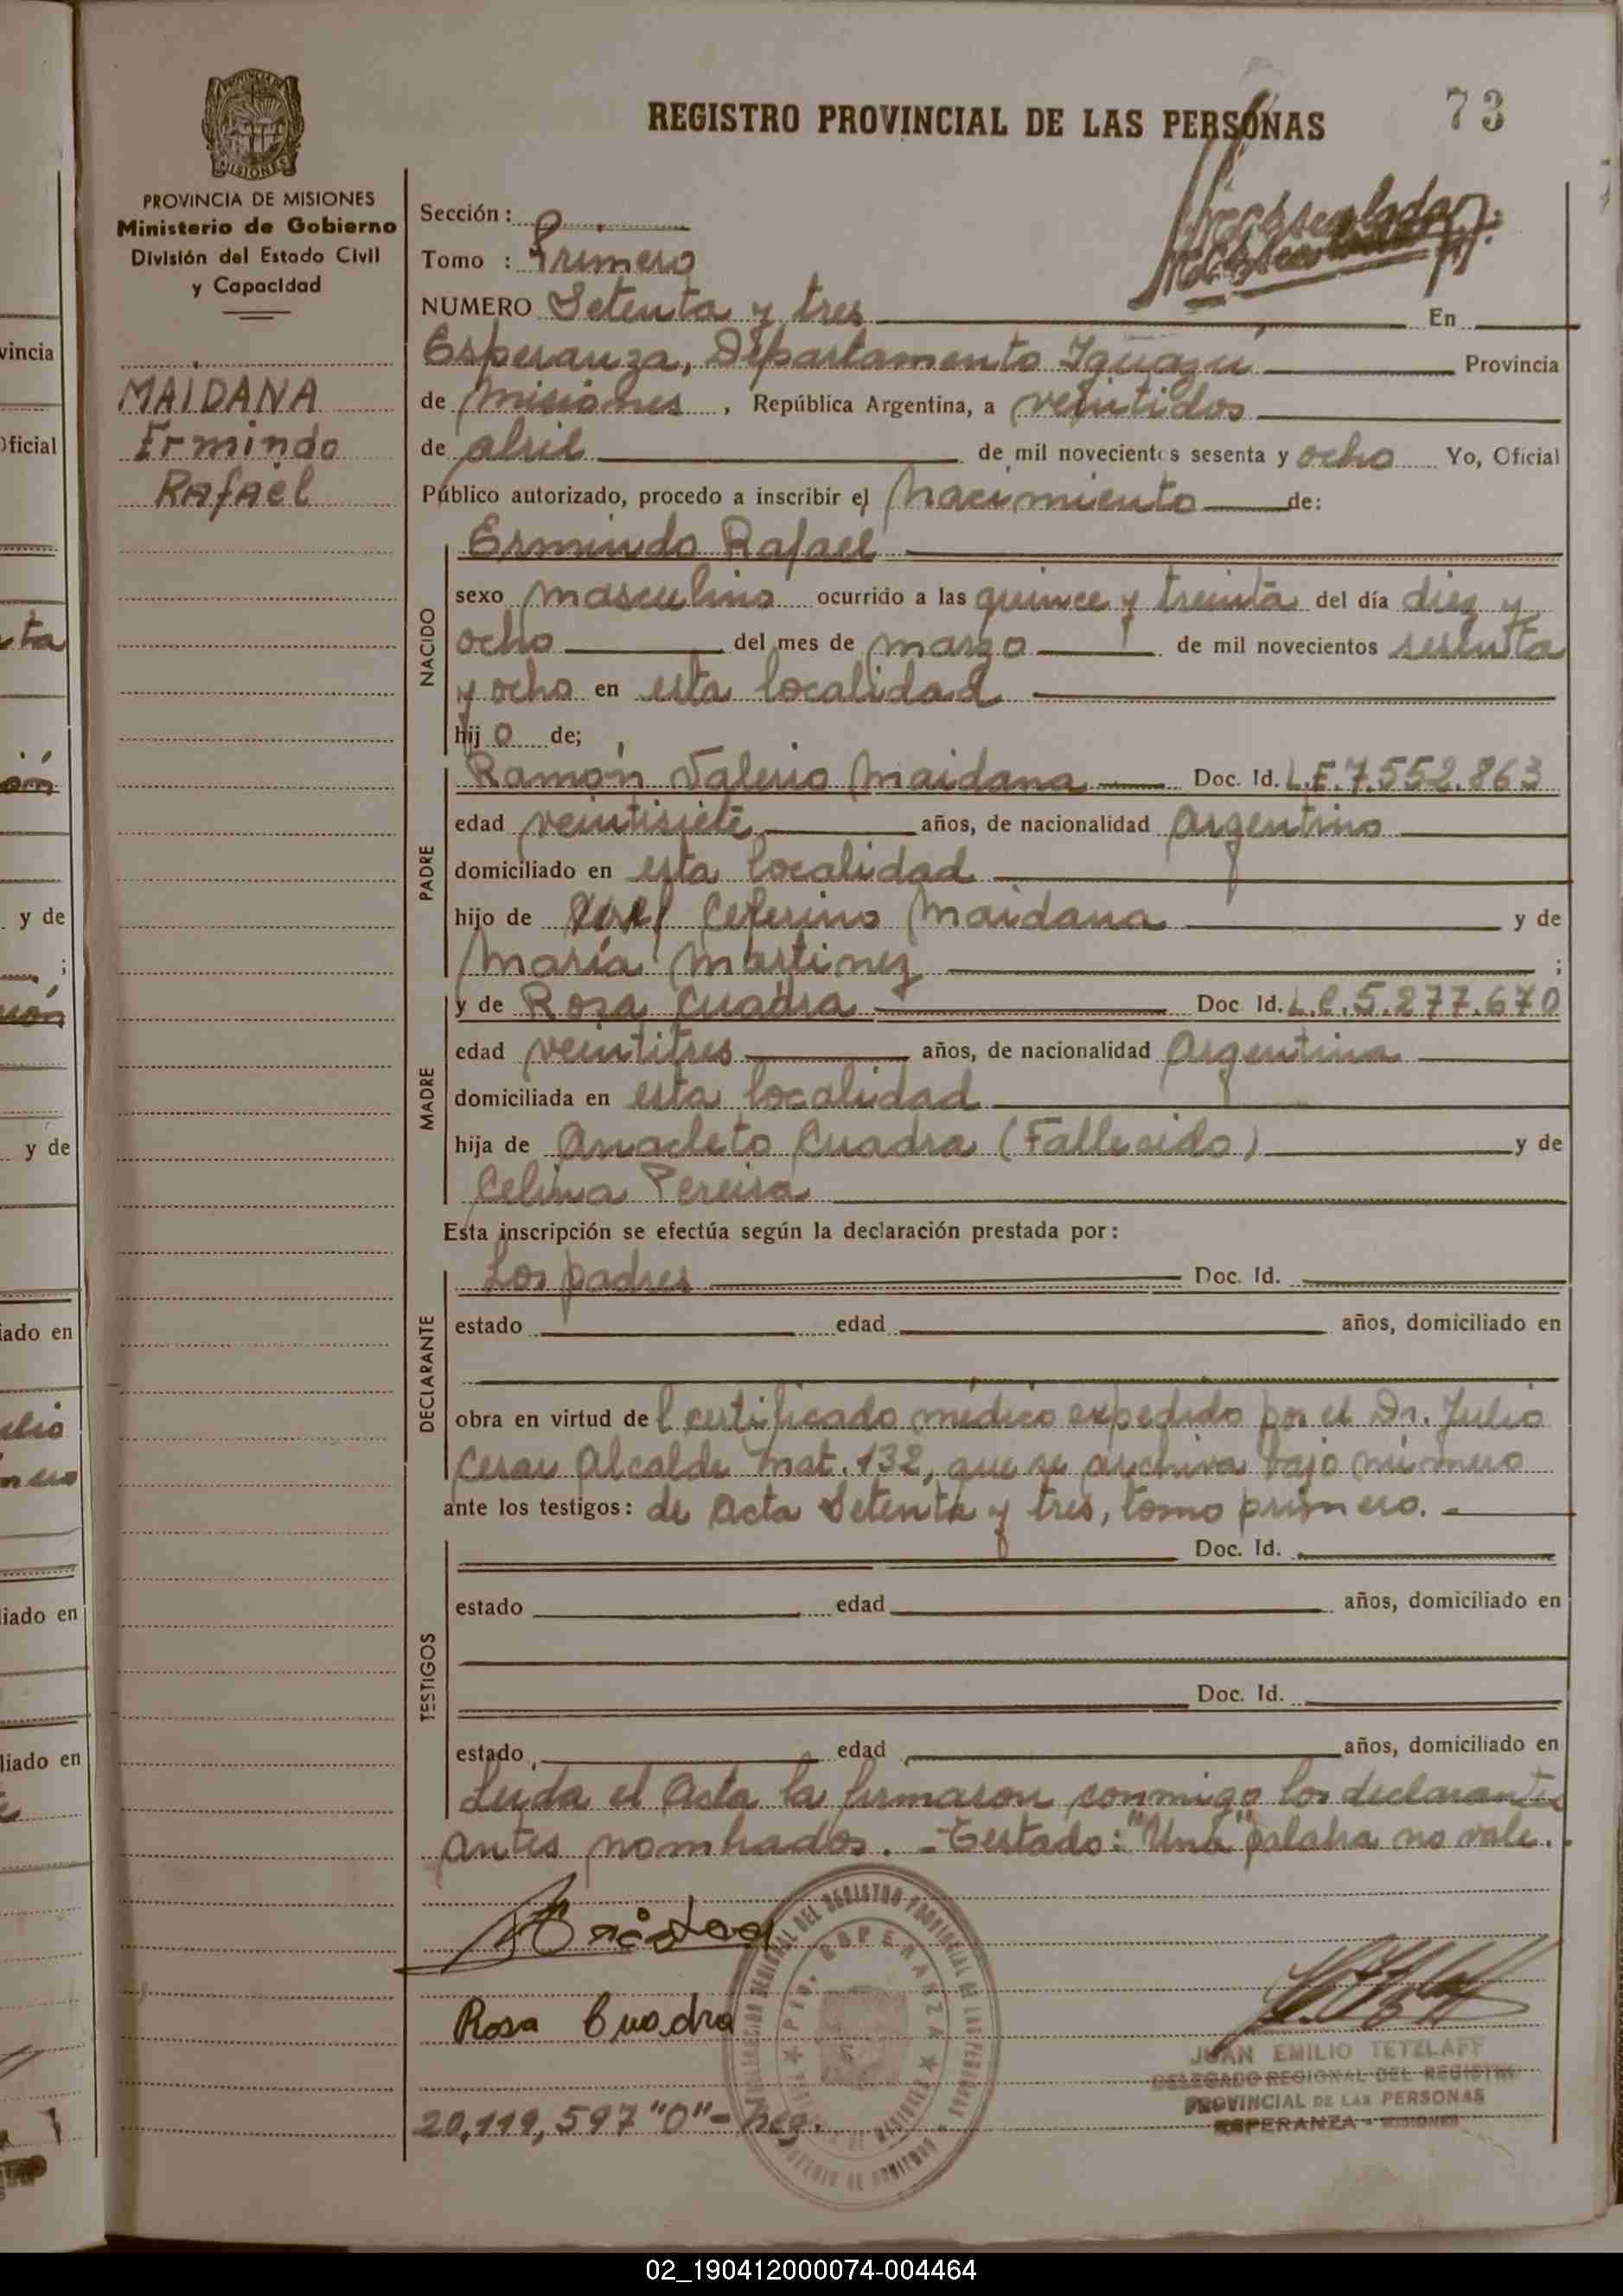 REGISTRO PROVINCIAL DE LAS PERSONAS
73
PROVINCIA DE MISIONES
Ministerio de Gobierno
División del Estado Civil
y Capacidad
MAIDANA
Ermindo
Rafael
Sección:
Tomo : Primero
NUMERO Setenta y tres En
Esperanza, Departamento Iguazú Provincia
de Misiones, República Argentina, a veintidos
de abril de mil novecientos sesenta y ocho Yo, Oficial
Público autorizado, procedo a inscribir el Nacimiento de:
NACIDO
Ermindo Rafael
sexo masculino ocurrido a las quince y treinta del día diez y
ocho del mes de marzo de mil novecientos sesenta
y ocho en esta localidad
hij o de;
PADRE
Ramón Valerio Maidana Doc. Id. L.E. 7.552.863
edad veintisiete años, de nacionalidad Argentino
domiciliado en esta localidad
hijo de Ceferino Maidana y de
María Martinez ;
MADRE
y de Rosa Cuadra Doc Id. L.C. 5.277.670
edad veintitres años, de nacionalidad Argentina
domiciliada en esta localidad
hija de Anacleto Cuadra (Fallecido) y de
Celina Pereira
Esta inscripción se efectúa según la declaración prestada por:
DECLARANTE
Los padres Doc. Id.
estado edad años, domiciliado en
obra en virtud del certificado médico expedido por el Dr. Julio
Cesar Alcalde Mat. 132, que se archiva bajo número
ante los testigos: de Acta Setenta y tres, tomo primero.-
TESTIGOS
Doc. Id.
estado edad años, domiciliado en
Doc. Id.
estado edad años, domiciliado en
Leida el Acta la firmaron conmigo los declarantes
antes nombrados.-Testado: "Una" palabra no vale.
Rosa Cuadra
JUAN EMILIO TETZLAFF
DELEGADO REGIONAL DEL REGISTRO
PROVINCIAL DE LAS PERSONAS
ESPERANZA - MISIONES
20,119,597 "O"- neg.
vincia
Oficial
y de
y de
iado en
liado en
liado en
02_190412000074-004464